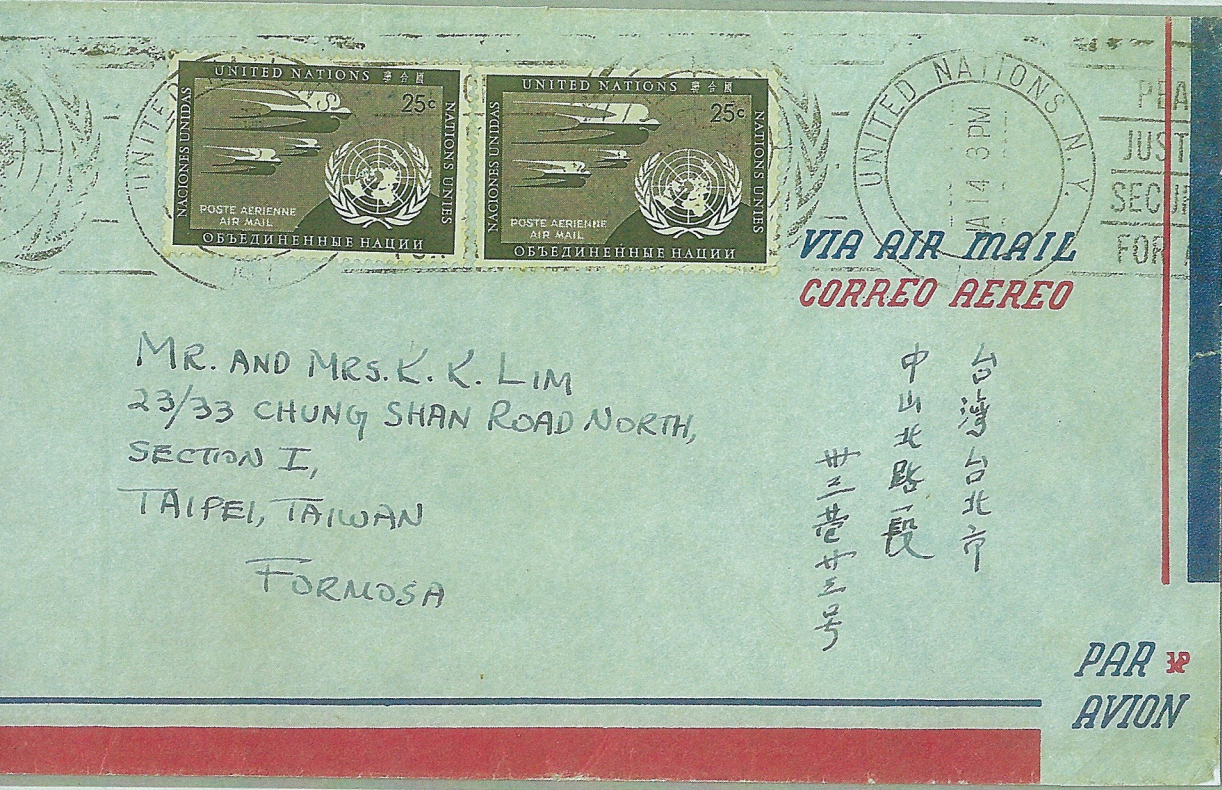 UNITED NATIONS 聯合國
NACIONES UNIDAS
25c
NATIONS UNIES
POSTE AERIENNE
AIR MAIL
ОБЪЕДИНЕННЫЕ НАЦИИ
UNITED NATIONS 聯合國
NACIONES UNIDAS
25c
NATIONS UNIES
POSTE AERIENNE
AIR MAIL
ОБЪЕДИНЕННЫЕ НАЦИИ
UNITED NATIONS N.Y.
JA 14 3 PM
PEA
JUST
SECUR
FOR A
VIA AIR MAIL
CORREO AEREO
MR. AND MRS. K. K. LIM
23/33 CHUNG SHAN ROAD NORTH,
SECTION I,
TAIPEI, TAIWAN
FORMOSA
台湾台北市
中山北路一段
卅三巷廿三号
PAR
AVION